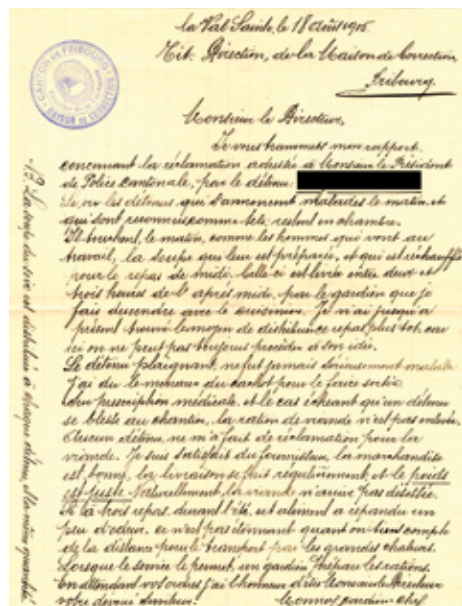 la Val Sainte, le 18 août 19
Tit. Direction, de la Maison de Correction,
Fribourg
CANTON DE FRIBOURG
MAISON DE CORRECTION
Monsieur le Directeur,
Je vous transmets mon rapport
concernant la réclamation adressée à Monsieur le Président
de Police cantonale, par le détenu
les détenus, qui s'annoncent malades le matin, et
qui sont reconnus comme tels, restent en chambre.
Ils touchent, le matin, comme les hommes qui vont au
travail, la soupe qui leur est préparée, et qui est réchauffée
pour le repas de midi. Celle-ci est livrée entre deux et
trois heures de l'après midi, par le gardien que je
fais descendre avec le cuisinier. Je n'ai jusqu'à
présent trouvé le moyen de distribuer ce repas plus tôt, car
ici on ne peut pas toujours procéder à son idée.
Le détenu plaignant, ne fut jamais sérieusement malade
J'ai du le menacer du cachot pour le faire sortir.
Sur prescription médicale, et le cas échéant qu'un détenu
se blesse au chantier, la ration de viande n'est pas enlevée.
Aucun détenu, ne m'a fait de réclamation pour la
viande. Je suis satisfait du fournisseur, la marchandise
est bonne, la livraison se fait régulièrement, et le poids
est juste. Naturellement, la viande n'arrive pas désossée.
A la trois repas, durant l'été, cet aliment a répandu un
peu d'odeur, ce n'est pas étonnant quant on tient compte
de la distance pour le transport par les grandes chaleurs.
Lorsque le service le permet, un gardien prépare les rations.
En attendant vos ordres j'ai l'honneur d'être Monsieur le Directeur
votre dévoué serviteur. gardien-chef
La soupe du soir est distribuée à chaque détenu, à la même quantité.